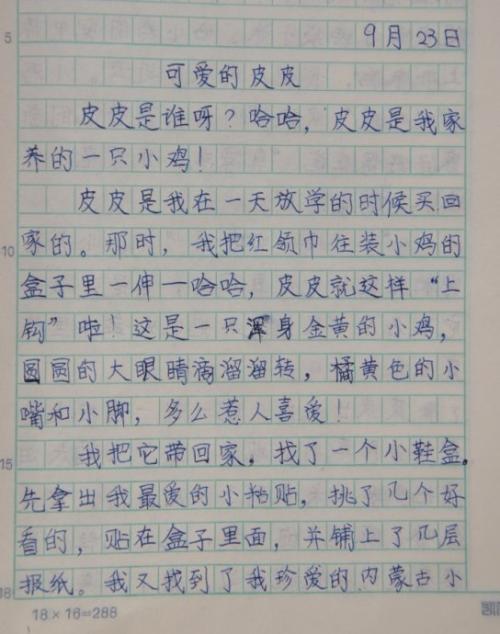 9月23日
5
可爱的皮皮
皮皮是谁呀？哈哈，皮皮是我家
养的一只小鸡！
皮皮是我在一天放学的时候买回
家的。那时，我把红领巾往装小鸡的
10
盒子里一伸一哈哈，皮皮就这样“上
钩”啦！这是一只浑身金黄的小鸡，
圆圆的大眼睛滴溜溜转，橘黄色的小
嘴和小脚，多么惹人喜爱！
我把它带回家。找了一个小鞋盒。
15
先拿出我最爱的小粘贴，挑了几个好
看的，贴在盒子里面，并铺上了几层
报纸。我又找到了我珍爱的内蒙古小
18
18×16=288